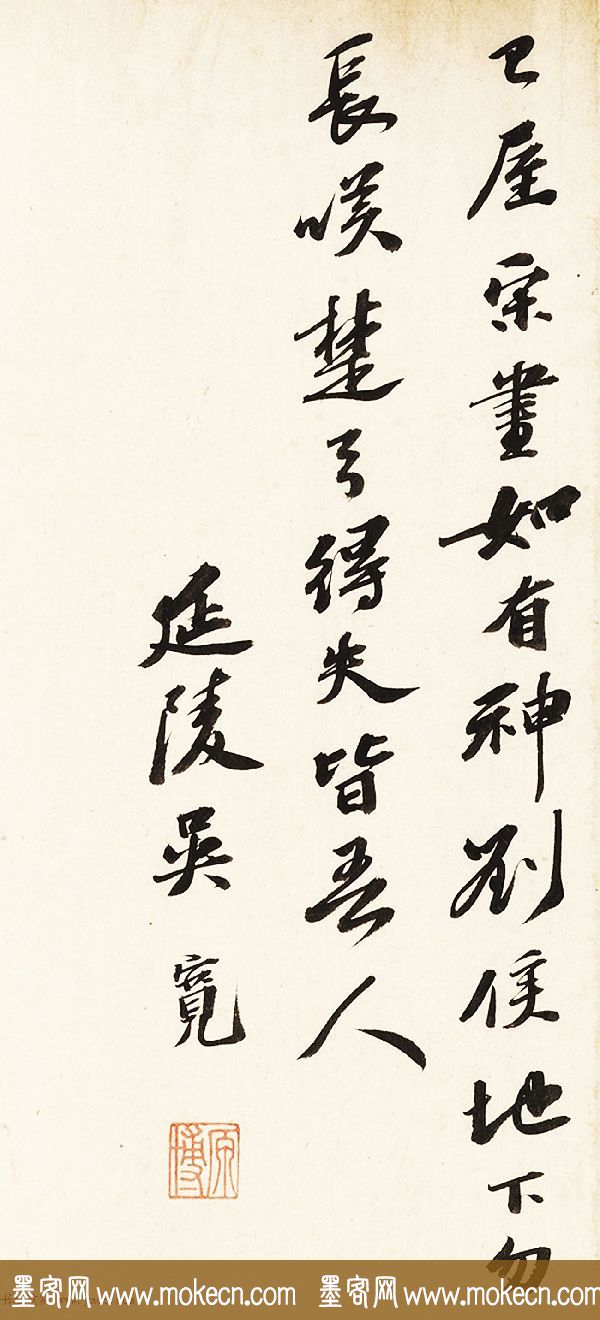 已屋宋畫如有神劉侯地下勿
長嘆楚弓得失皆吾人
延陵吳寬
原博
墨客网 www.mokecn.com 墨客网 www.mokecn.com